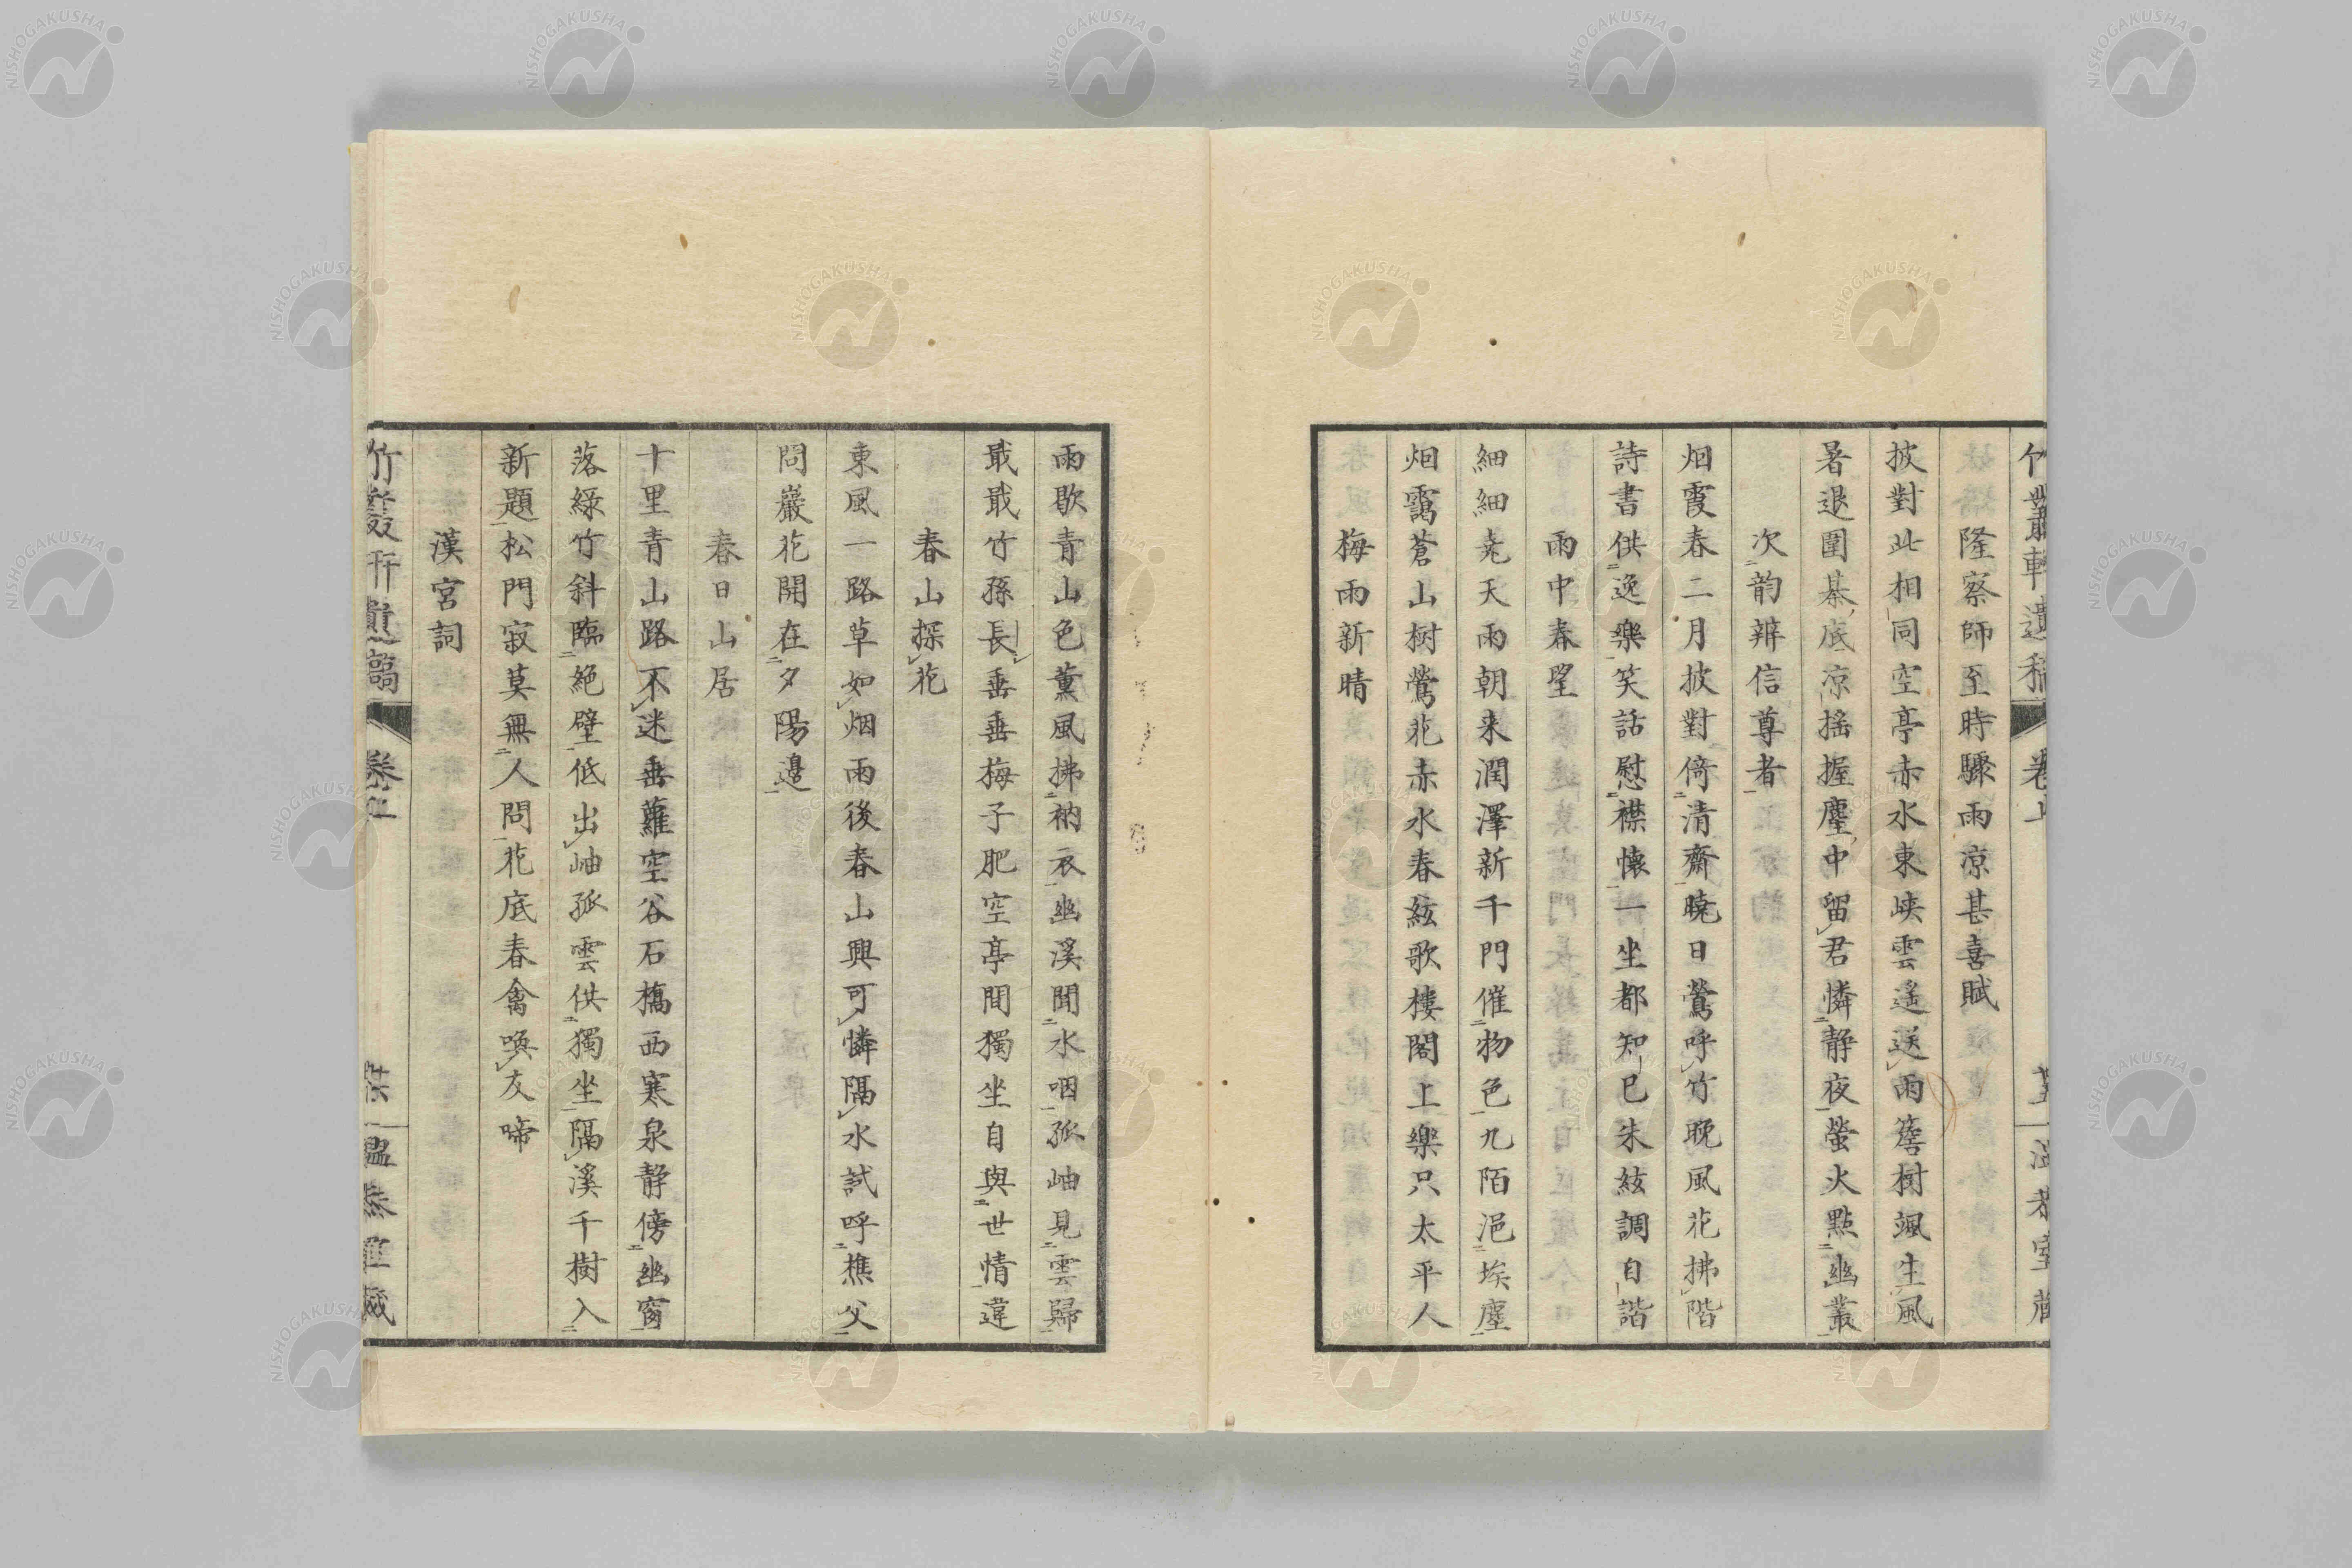 竹叢軒遺稿 卷上
隆察師至時驟雨凉甚喜賦
披對此相同空亭赤水東峽雲遙送雨簷樹颯生風
暑退圍棊底凉搖握麈中留君憐静夜螢火點幽叢
次韵辨信尊者
烟霞春二月披對倚清齋曉日鶯呼竹晚風花拂階
詩書供逸樂笑話慰襟懷一坐都知己朱絃調自諧
雨中春望
細細尭天雨朝来潤澤新千門催物色九陌浥埃塵
烟靄蒼山樹鶯花赤水春絃歌樓閣上樂只太平人
梅雨新晴
雨歇青山色薰風拂衲衣幽溪聞水咽孤岫見雲歸
戢戢竹孫長垂垂梅子肥空亭閒獨坐自與世情違
春山探花
東風一路草如烟雨後春山興可憐隔水試呼樵父
問巖花開在夕陽邊
春日山居
十里青山路不迷垂蘿空谷石橋西寒泉静傍幽窗
落綠竹斜臨絶壁低出岫孤雲供獨坐隔溪千樹入
新題松門寂莫無人問花底春禽喚友啼
漢宮詞
NISHOGAKUSHA